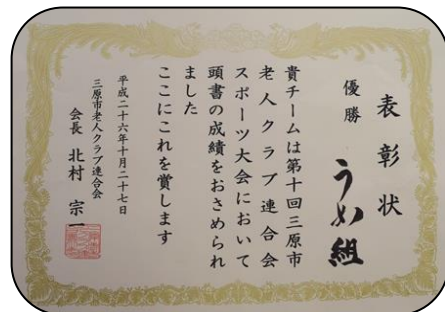 表彰状
優勝 うめ組
貴チームは第十回三原市
老人クラブ連合会
スポーツ大会において
頭書の成績をおさめられ
ました
ここにこれを賞します
平成二十六年十月二十七日
三原市老人クラブ連合会
会長 北村 宗一